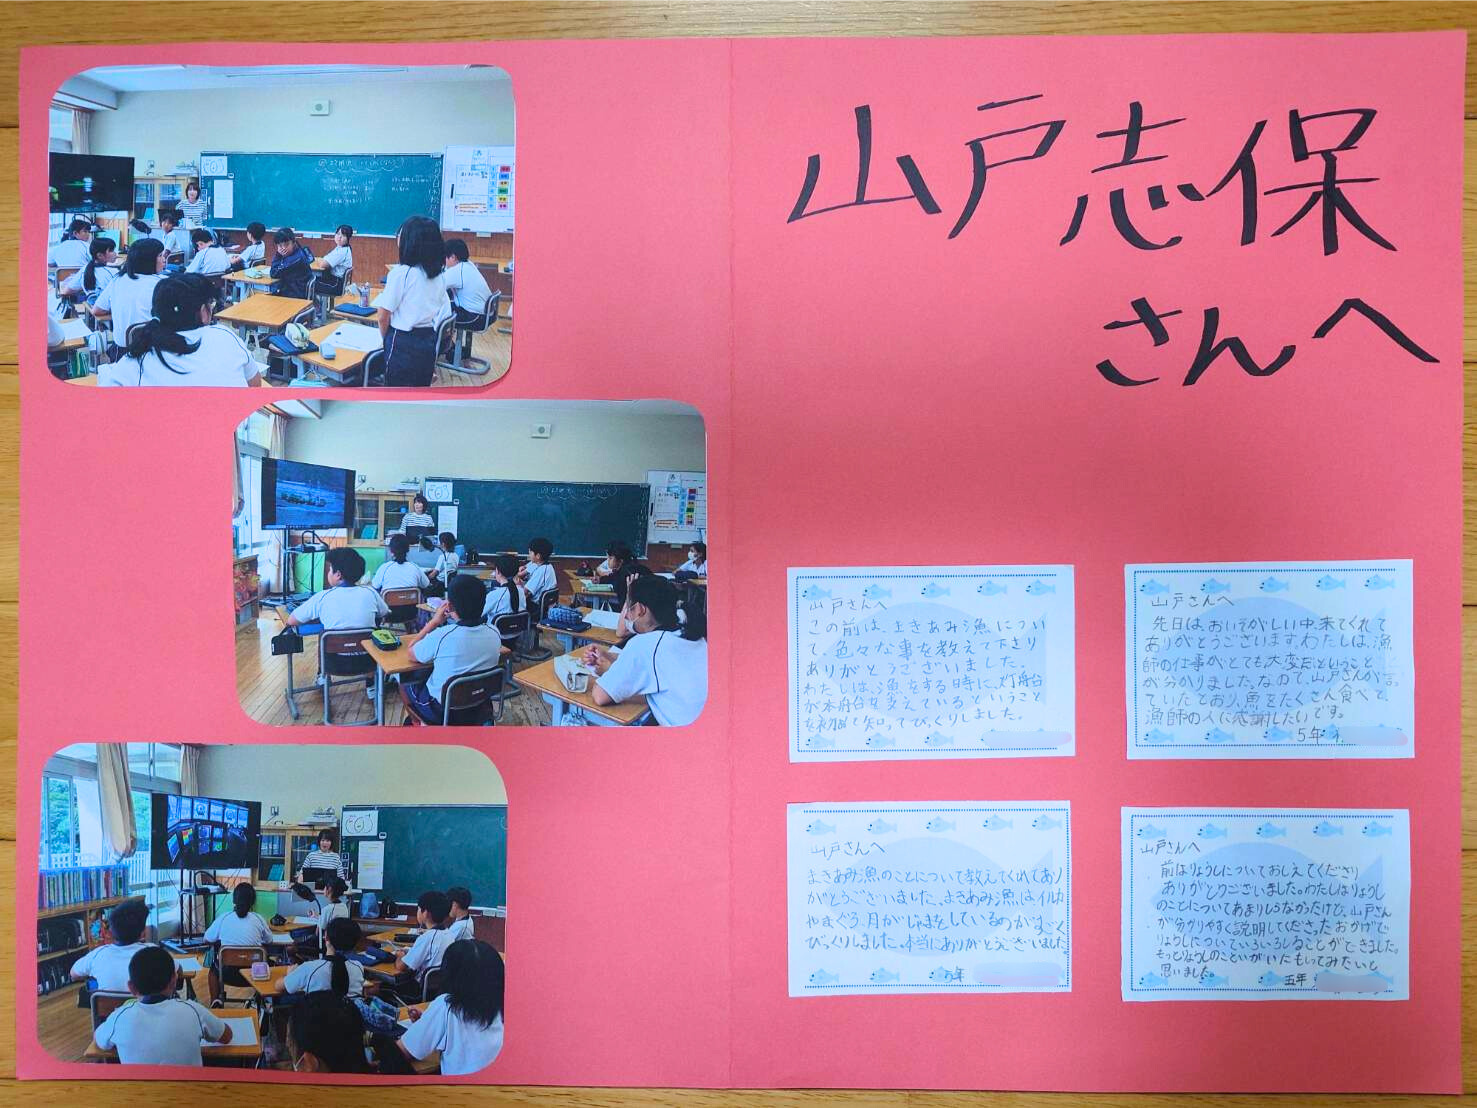 山戸志保
さんへ
山戸さんへ
この前は、まきあみ漁につい
て、色々な事を教えて下さり
ありがとうございました。
わたしは、漁をする時に、灯船台
が本船台を支えているということ
を初めて知ってびっくりしました。
山戸さんへ
先日は、おいそがしい中、来てくれて
ありがとうございます。わたしは、漁
師の仕事がとても大変だということ
が分かりました。なので、山戸さんが言っ
ていたとおり、魚をたくさん食べて、
漁師の人に感謝したいです。
5年
山戸さんへ
まきあみ漁のことについて教えてくれてあり
がとうございました。まきあみ漁はイルカ
やまぐろ、月がじゃまをしているのがすごく
びっくりしました。本当にありがとうございました。
5年
山戸さんへ
前はりょうしについておしえてくださり
ありがとうございました。わたしはりょうし
のことについてあまりしらなかったけど、山戸さん
が分かりやすく説明してくださったおかげで
りょうしについていろいろしることができました。
もっとりょうしのこといがいにもしってみたいと
思いました。
五年